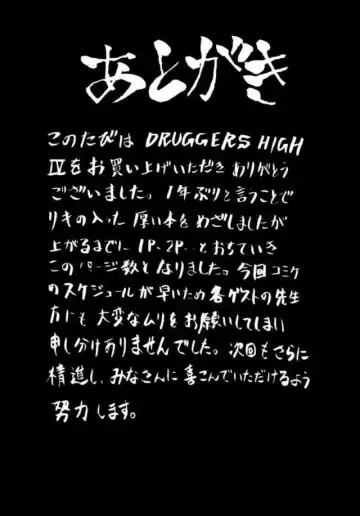 あとがき
このたびは DRUGGERS HIGH
IVをお買い上げいただき ありがとう
ございました。1年ぶりと言うことで
リキの入った 厚い本をめざしましたが
上がるまでに 1P、2P…とおちていき
このページ数となりました。今回コミケ
のスケジュールが早いため各ゲストの先生
方にも 大変なムリをお願いしてしまい
申し分けありませんでした。次回もさらに
精進し、みなさんに喜こんでいただけるよう
努力します。